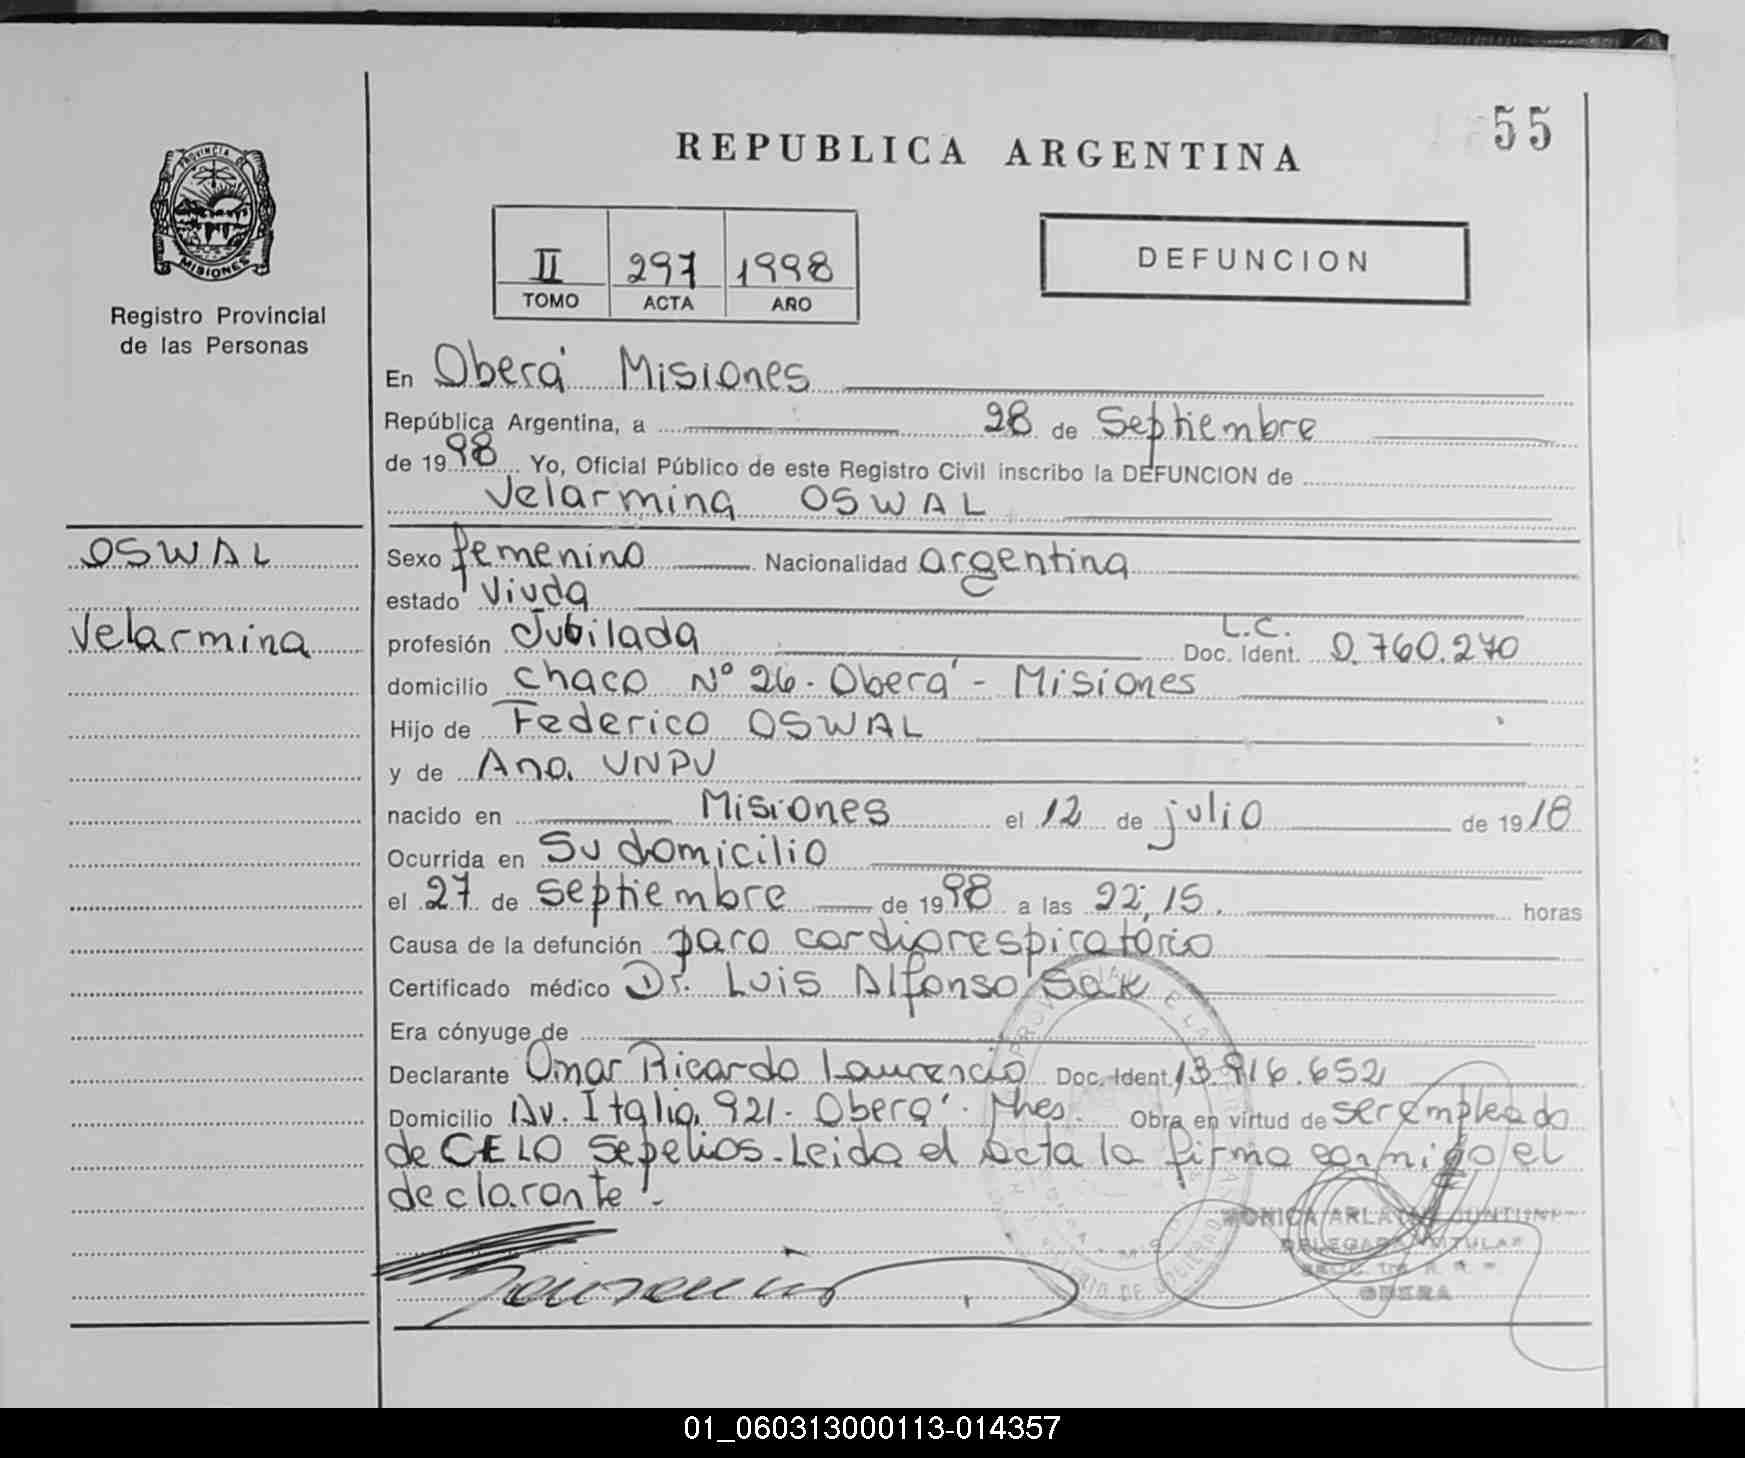 55
REPUBLICA ARGENTINA
PROVINCIA DE
MISIONES
Registro Provincial
de las Personas
II 297 1998
TOMO ACTA AÑO
DEFUNCION
En Oberá Misiones
República Argentina, a 28 de Septiembre
de 1998 Yo, Oficial Público de este Registro Civil inscribo la DEFUNCION de
Velarmina OSWAL
OSWAL
Velarmina
Sexo femenino Nacionalidad argentina
estado Viuda
profesión Jubilada L.C. Doc. Ident. 0.760.270
domicilio Chaco Nº 26. Oberá - Misiones
Hijo de Federico OSWAL
y de Ana UNPU
nacido en Misiones el 12 de julio de 1918
Ocurrida en Su domicilio
el 27 de septiembre de 1998 a las 22,15. horas
Causa de la defunción paro cardiorespiratorio
Certificado médico Dr. Luis Alfonso Sak
Era cónyuge de
Declarante Omar Ricardo Laurencio Doc. Ident. 13.916.652
Domicilio Av. Italia 921. Oberá. Mnes. Obra en virtud de ser empleado
de CELO Sepelios. Leida el acta la firma conmigo el
declarante.-
MONICA
DELEGADA TITULAR
OBERA
01_060313000113-014357